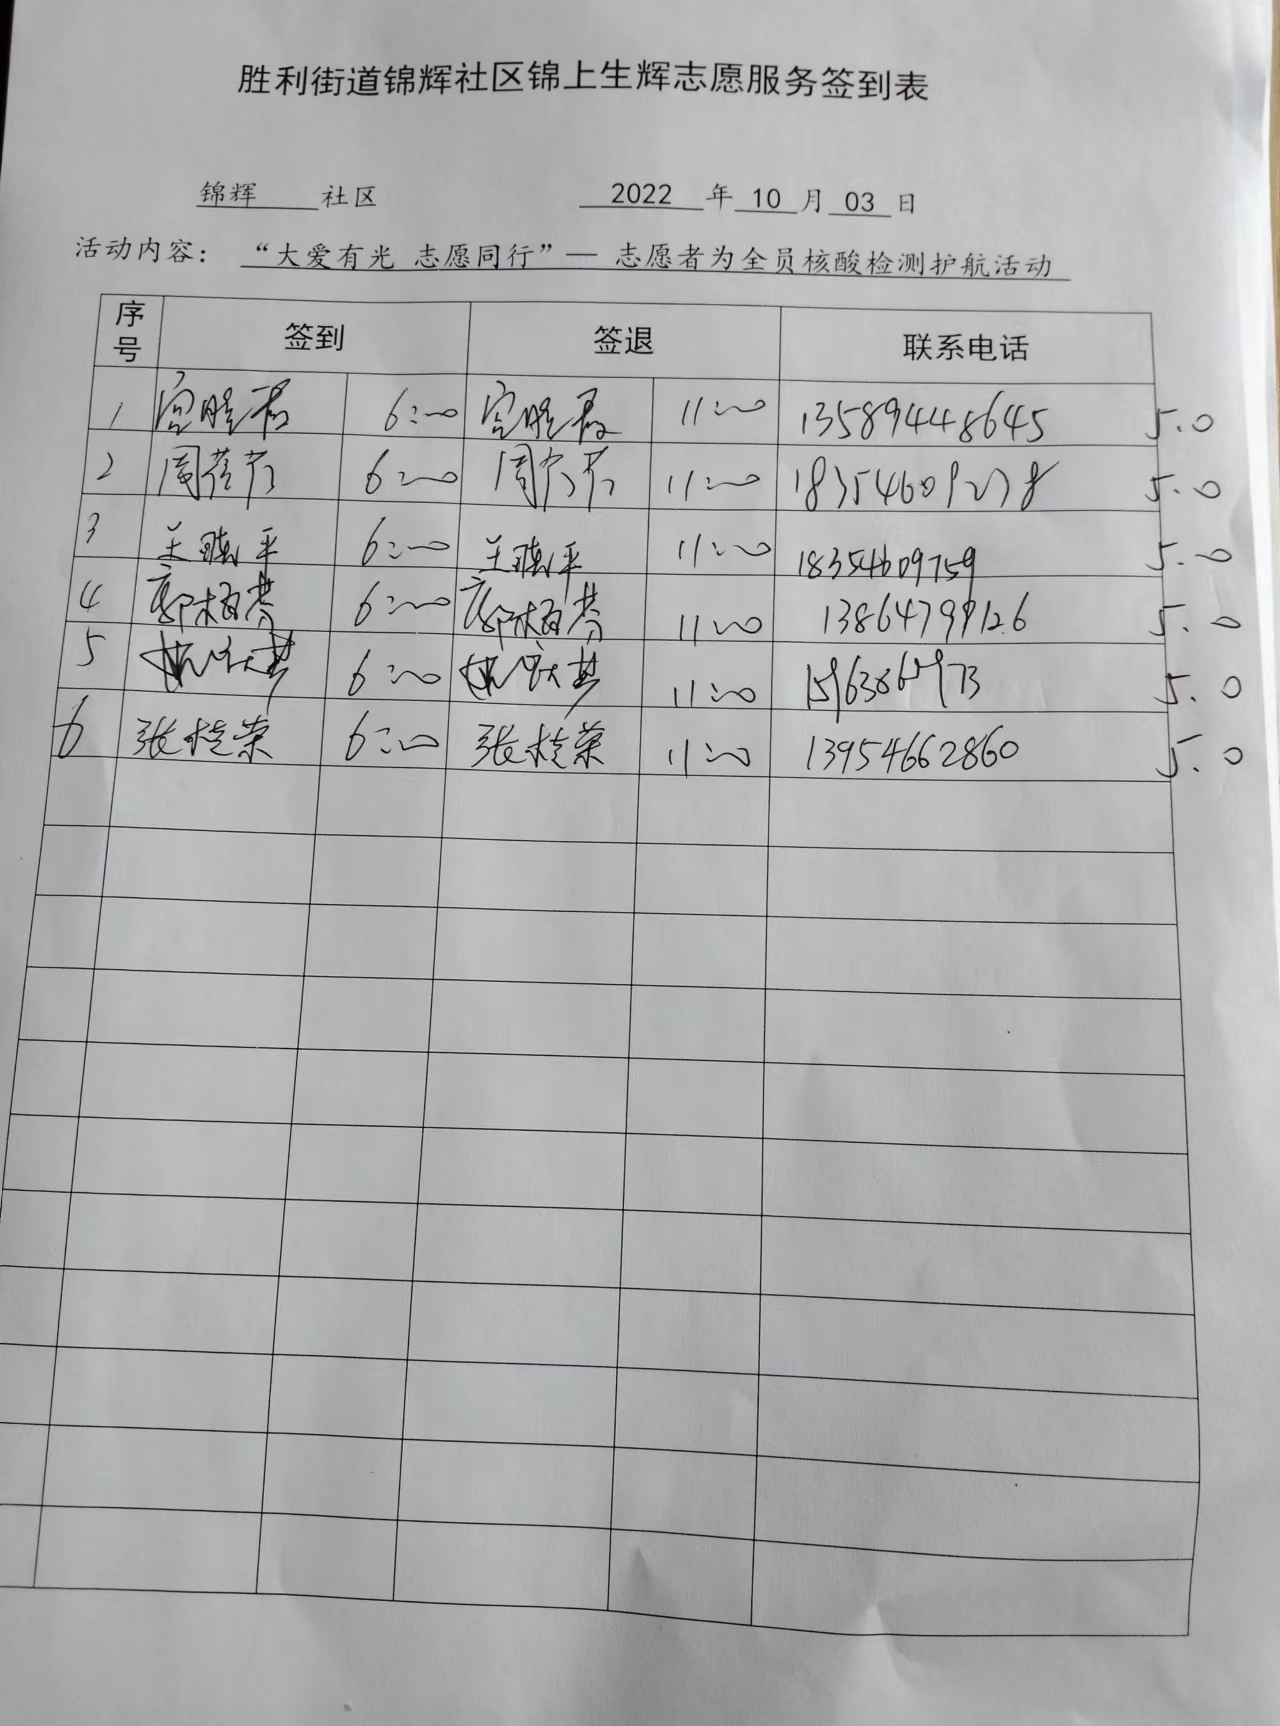 胜利街道锦辉社区锦上生辉志愿服务签到表
锦辉 社区 2022 年 10 月 03 日
活动内容： “大爱有光 志愿同行”— 志愿者为全员核酸检测护航活动
序号 签到 签退 联系电话
1 宫晓君 6:00 宫晓君 11:00 13589448645 5.0
2 周 6:00 周 11:00 5.0
3 王 平 6:00 王 平 11:00 18354609759 5.0
4 郭梅芬 6:00 郭梅芬 11:00 13864799126 5.0
5 6:00 11:00 5.0
6 张桂荣 6:00 张桂荣 11:00 13954662860 5.0